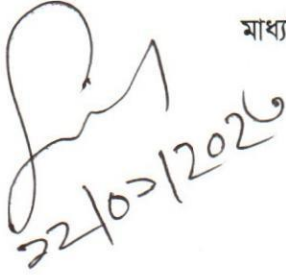 মাধ্য
২২/০১/২০২৩